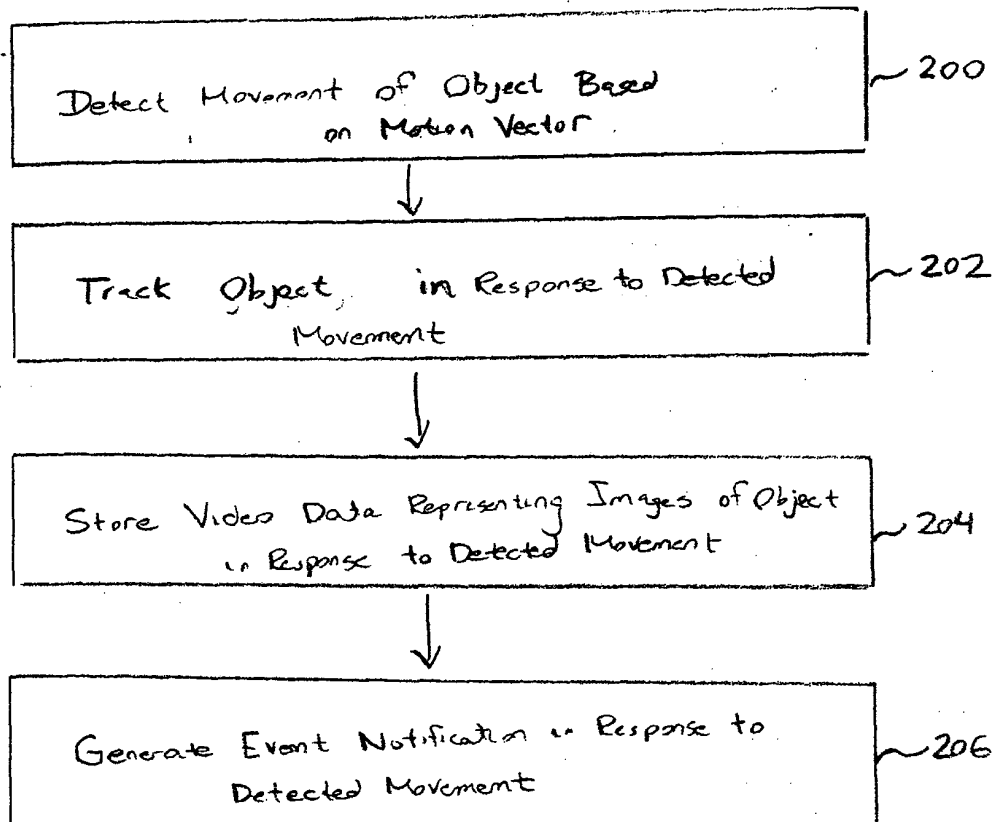 Detect Movement of Object Based
on Motion Vector
200
Track Object, in Response to Detected
Movement
202
Store Video Data Representing Images of Object
in Response to Detected Movement
204
Generate Event Notification in Response to
Detected Movement
206